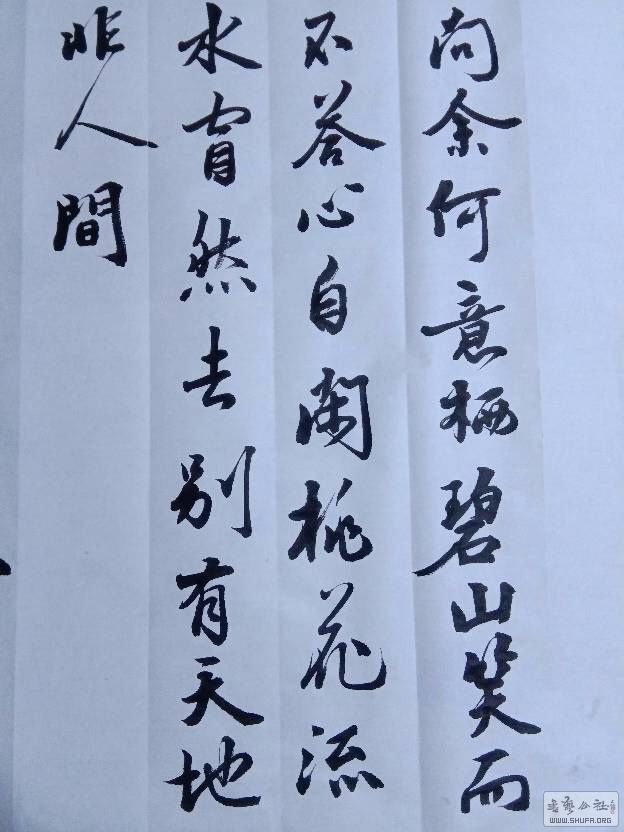 问余何意栖碧山笑而
不答心自闲桃花流
水窅然去别有天地
非人間
书艺公社
WWW.SHUFA.ORG